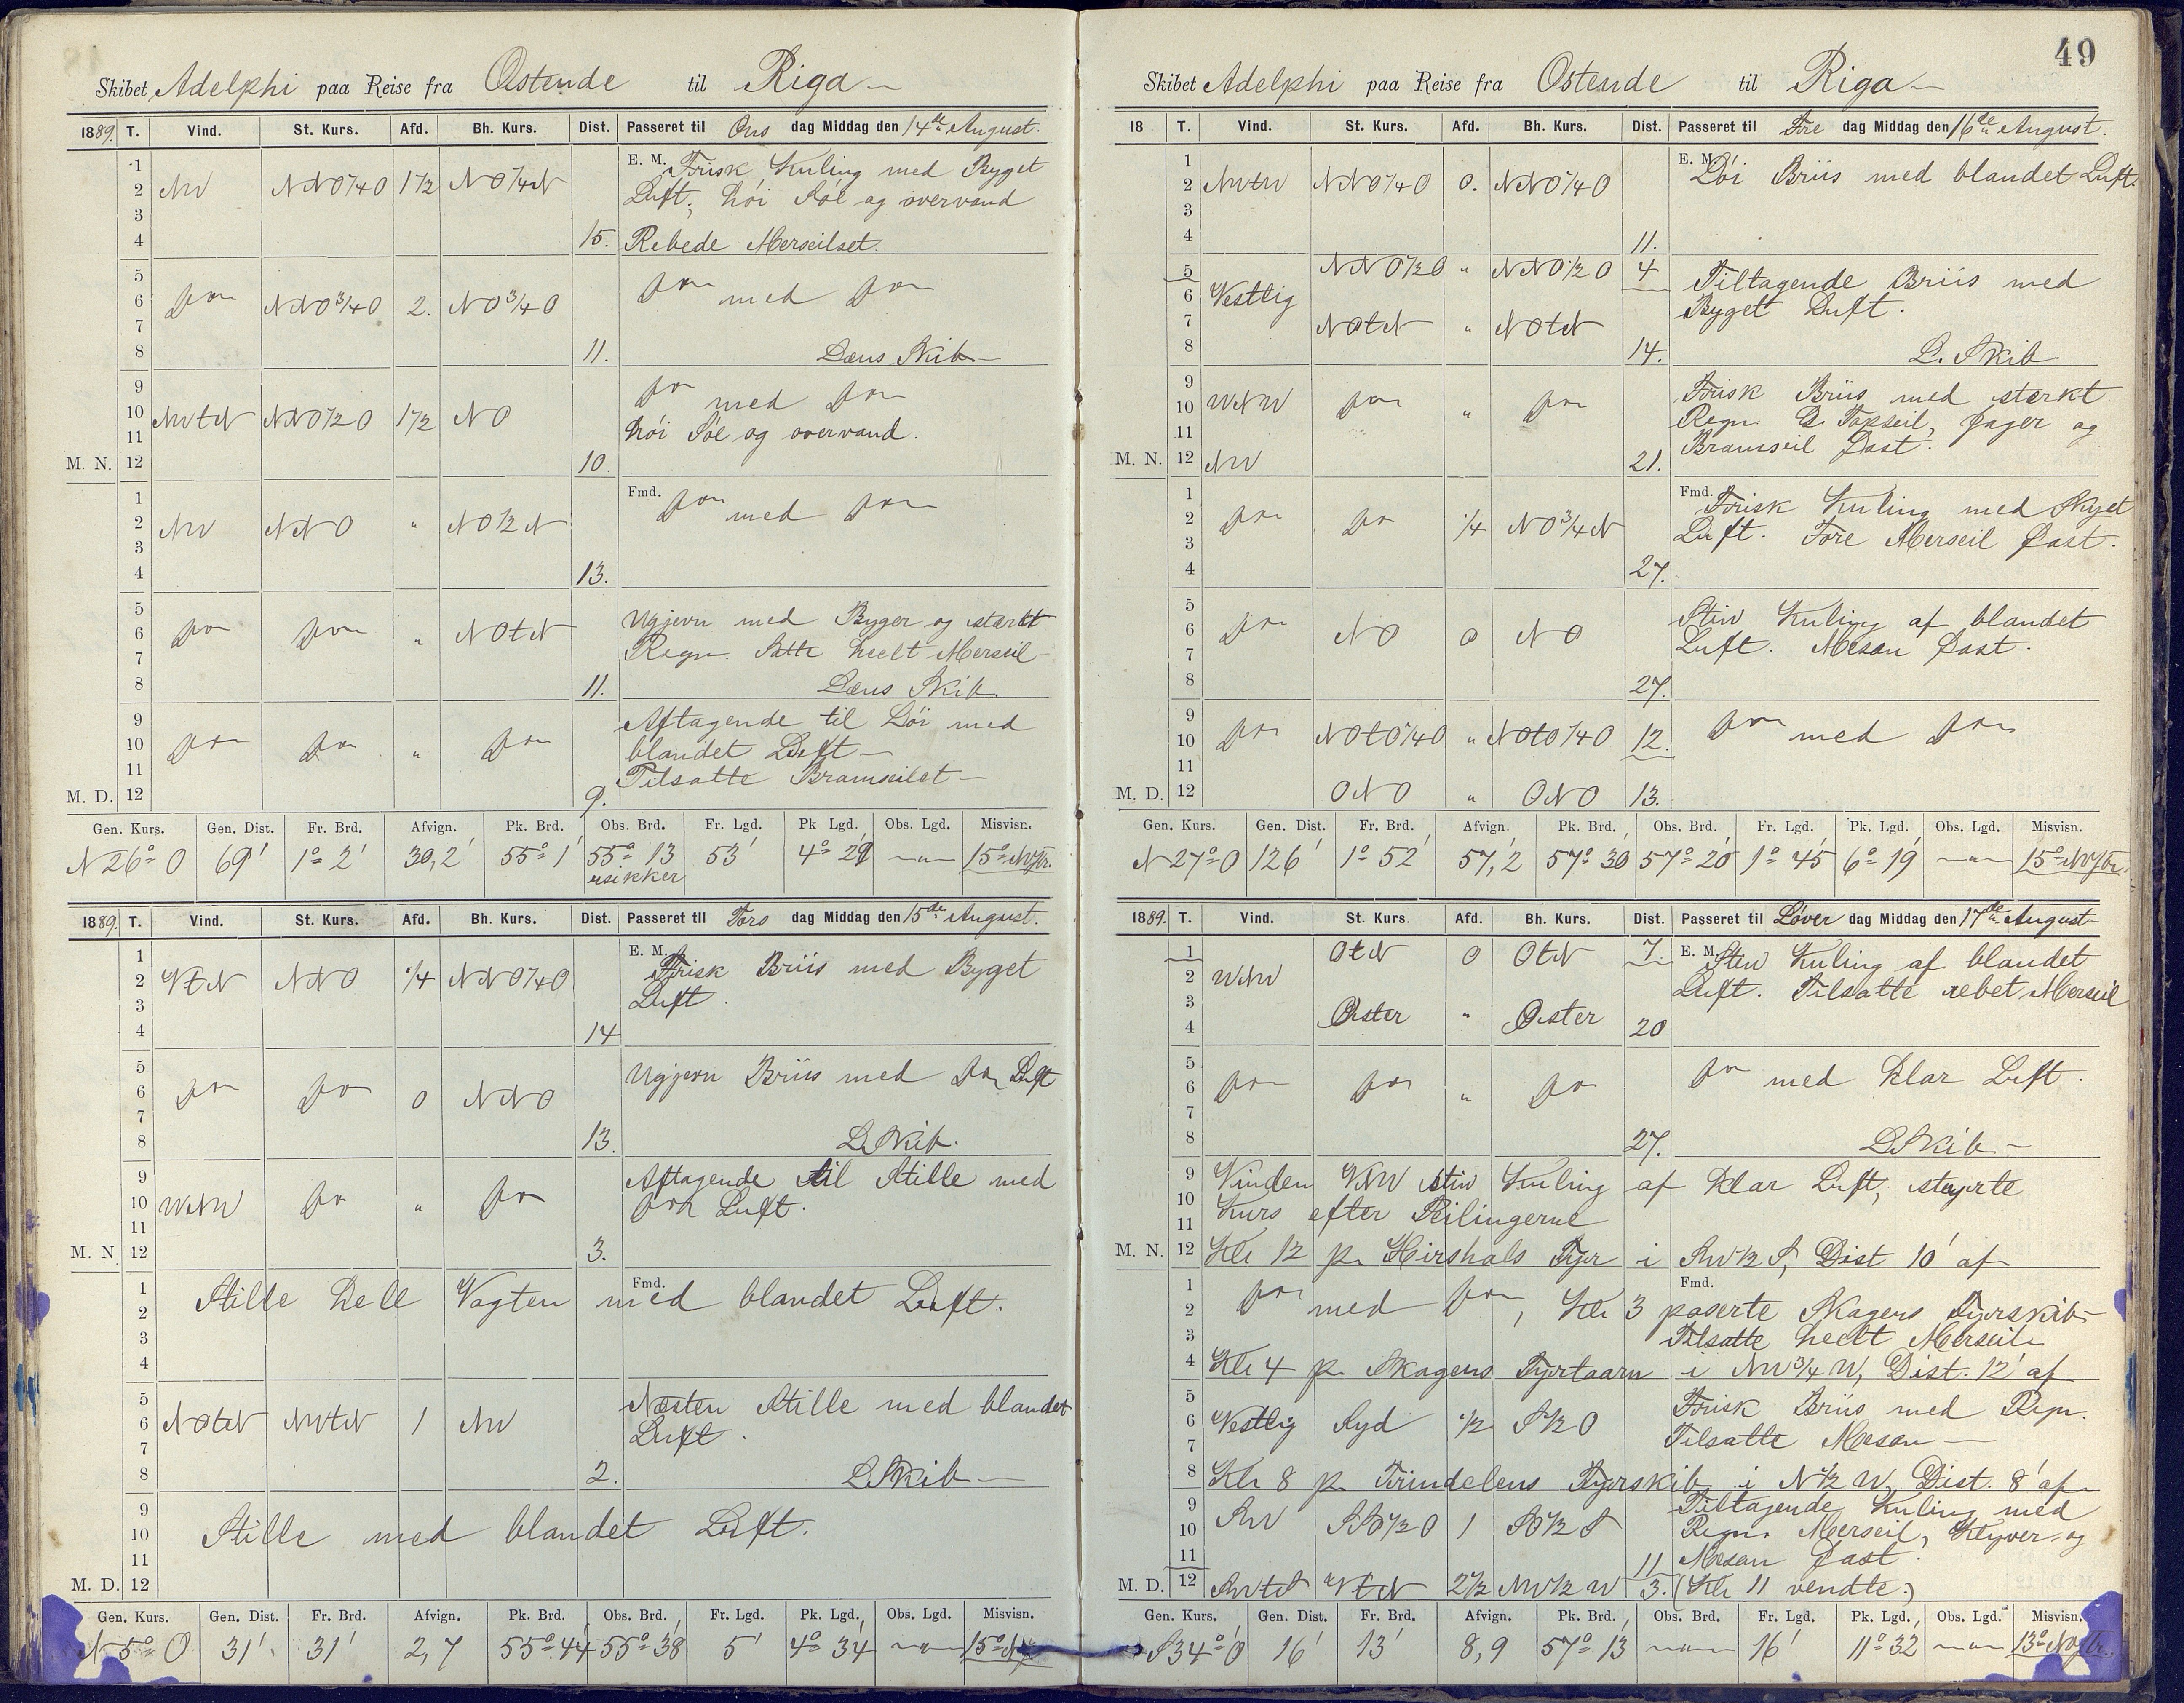 Skibet Adelphi paa Reise fra Ostende til Riga
1889. T. Vind. St. Kurs. Afd. Bh. Kurs. Dist. Passeret til Ons dag Middag den 14de August.
1 E. M. Frisk Kuling med Byget
2 NW NNO1/4O 1 1/2 NO1/4N Luft, høi Søe og overvand
3
4 15. Rebede Merseilset.
5
6 Do NNO3/4O 2. NO3/4O Do med Do
7
8 11. Læns Skib
9 Do med Do
10 NWtN NNO1/2O 1 1/2 NO
11 høi Søe og overvand.
M. N. 12 10.
1 Fmd. Do med Do
2 NW NNO " NO1/2N
3
4 13.
5 Ugjevn med Byger og stærkt
6 Do Do " NOtN Regn. Satte heelt Merseil
7
8 11. Læns Skib
9 Aftagende til Løi med
10 Do Do " Do blandet Luft
11 Tilsatte Bramseilet
M. D. 12 9.
Gen. Kurs. Gen. Dist. Fr. Brd. Afvign. Pk. Brd. Obs. Brd. Fr. Lgd. Pk Lgd. Obs. Lgd. Misvisn.
N 26° O 69' 1° 2' 30,2' 55° 1' 55° 13' 53' 4° 29' 15°
usikker
1889. T. Vind. St. Kurs. Afd. Bh. Kurs. Dist. Passeret til Tors dag Middag den 15de August.
1 E. M. Frisk Briis med Byget
2 VtN NNO 1/4 NNO1/4O Luft.
3
4 14
5 Ugjevn Briis med Do Luft
6 Do Do O NNO
7
8 13. L. Skib.
9 Aftagende til Stille med
10 WNW Do " Do Do Luft.
11
M. N 12 3.
1 Fmd.
2 Stille hele Vagten med blandet Luft.
3
4
5 Næsten Stille med blandet
6 NOtN NWtN 1 NW Luft.
7
8 2. L Skib
9
10 Stille med blandet Luft.
11
M. D. 12
Gen. Kurs. Gen. Dist. Fr. Brd. Afvign. Pk. Brd. Obs. Brd. Fr. Lgd. Pk. Lgd. Obs. Lgd. Misvisn.
N 5° O 31' 31' 2,7 55° 44' 55° 38' 5' 4° 34' 15°
49
Skibet Adelphi paa Reise fra Ostende til Riga
18 T. Vind. St. Kurs. Afd. Bh. Kurs. Dist. Passeret til Fre dag Middag den 16de August.
1 E. M. Løi Briis med blandet Luft.
2 NWtW NNO1/4O O. NNO1/4O
3
4 11.
5 NNO1/2O " NNO1/2O 4 Tiltagende Briis med
6 Vestlig Byget Luft.
7 NOtN " NOtN
8 14. L. Skib
9 Frisk Briis med stærkt
10 WNW Do " Do Regn. Topseil, Jager og
11 Bramseil Fast.
M. N. 12 NW 21.
1 Fmd. Frisk Kuling med Skyet
2 Do Do 1/4 NO3/4N Luft. Fore Merseil Fast.
3
4 27.
5 Stiv Kuling af blandet
6 Do NO O NO Luft. Mesan Fast.
7
8 27.
9 Do med Do
10 Do NOtO1/4O " NOtO1/4O 12.
11
M. D. 12 ONO " ONO 13.
Gen. Kurs. Gen. Dist. Fr. Brd. Afvign. Pk. Brd. Obs. Brd. Fr. Lgd. Pk. Lgd. Obs. Lgd. Misvisn.
N 27° O 126' 1° 52' 57,2 57° 30' 57° 20' 1° 45' 6° 19' 15°
1889. T. Vind. St. Kurs. Afd. Bh. Kurs. Dist. Passeret til Løver dag Middag den 17de August
1 OtN O OtN 7. E. M. Stiv Kuling af blandet
2 WNW Luft. Tilsatte rebet Merseil
3
4 Øster " Øster 20
5 Do med klar Luft.
6 Do Do " Do
7
8 27. L Skib
9 Vinden VNW stiv Kuling af klar Luft, styrte
10 Kurs efter Peilingerne
11
M. N. 12 Kl 12 p. Hirshals Fyr i SW1/2S, Dist 10' af
1 Fmd.
2 Do med Do, Kl 3 paserte Skagens Fyrskib
3 Tilsatte heelt Merseil
4 Kl 4 p. Skagens Fyrtaarn i NW3/4W, Dist. 12' af
5 Frisk Briis med Regn.
6 Vestlig Syd 1/2 S1/2O
7 Tilsatte Mesan
8 Kl 8 p. Trindelens Fyrskib i N1/2W, Dist. 8' af
9 Tiltagende Kuling med
10 SW SSO1/2O 1 SO1/2S Regn. Merseil, Klyver og
11 11 Mesan Fast.
M. D. 12 SWtS VtN 2 1/2 NW1/2W 3. (Kl 11 vendte.)
Gen. Kurs. Gen. Dist. Fr. Brd. Afvign. Pk. Brd. Obs. Brd. Fr. Lgd. Pk. Lgd. Obs. Lgd. Misvisn.
S 34° O 16' 13' 8,9 57° 13' 16' 11° 32' 13°